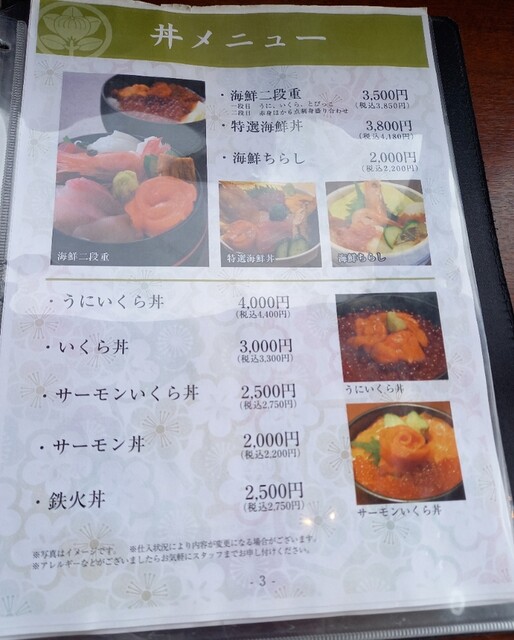 丼メニュー
・海鮮二段重 3,500円
一段目 うに、いくら、とびっこ (税込3,850円)
二段目 赤身ほか6点刺身盛り合わせ
・特選海鮮丼 3,800円
(税込4,180円)
・海鮮ちらし 2,000円
(税込2,200円)
海鮮二段重
特選海鮮丼
海鮮ちらし
・うにいくら丼 4,000円
(税込4,400円)
・いくら丼 3,000円
(税込3,300円)
うにいくら丼
・サーモンいくら丼 2,500円
(税込2,750円)
・サーモン丼 2,000円
(税込2,200円)
・鉄火丼 2,500円
(税込2,750円)
サーモンいくら丼
※写真はイメージです。 ※仕入状況により内容が変更になる場合がございます。
※アレルギーなどがございましたらお気軽にスタッフまでお申し付けください。
- 3 -